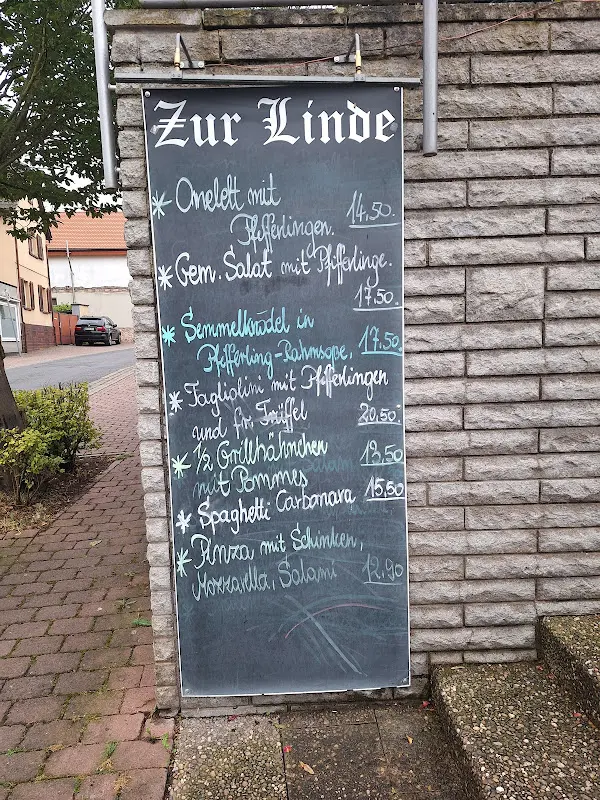 Zur Linde
* Omelett mit
Pfifferlingen. 14,50.
* Gem. Salat mit Pfifferlinge.
17,50.
* Semmelknödel in
Pfifferling-Rahmsoße, 17,50
* Tagliolini mit Pfifferlingen
und fr. Trüffel 20,50.
* 1/2 Grillhähnchen
mit Pommes 13,50
* Spaghetti Carbonara 15,50
* Pinza mit Schinken,
Mozzarella, Salami 12,90